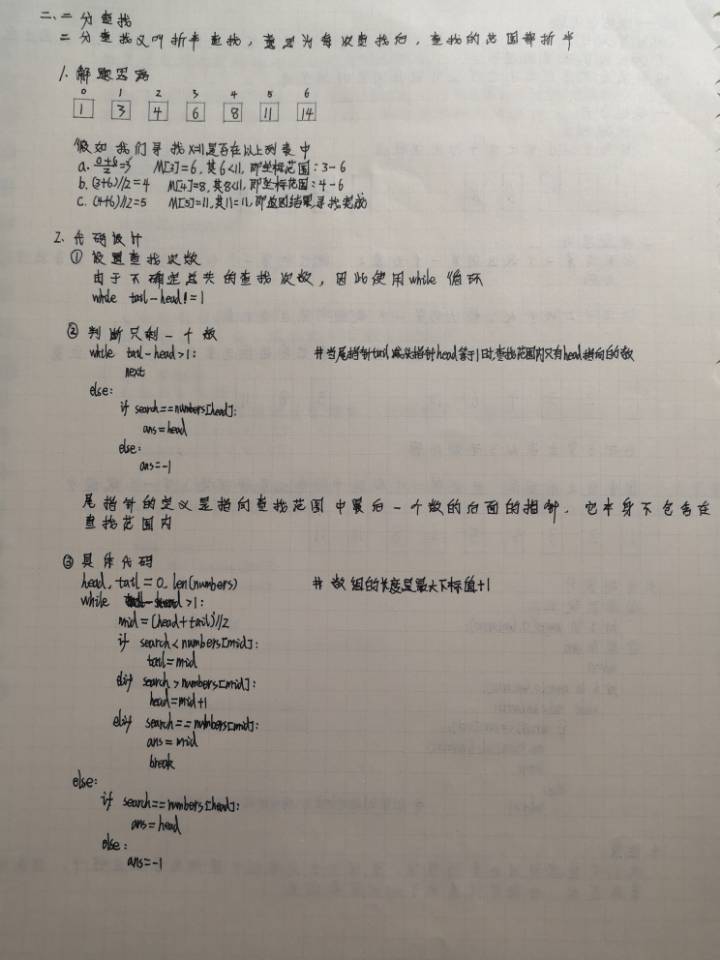 二、二分查找
二分查找又叫折半查找，意思为每次查找后，查找的范围都折半
1. 解题思路
0 1 2 3 4 5 6
1 3 4 6 8 11 14
假如我们寻找x=11是否在以上列表中
a. (0+6)/2=3 M[3]=6, 其6<11, 即坐标范围：3-6
b. (3+6)//2=4 M[4]=8, 其8<11, 即坐标范围：4-6
c. (4+6)//2=5 M[5]=11, 其11=11, 即返回结果，寻找完成
2. 代码设计
① 设置查找次数
由于不确定总共的查找次数，因此使用while循环
while tail-head!=1
② 判断只剩一个数
while tail-head>1: #当尾指针tail减头指针head等于1时,查找范围内只有head指向的数
next
else:
if search==numbers[head]:
ans=head
else:
ans=-1
尾指针的定义是指向查找范围中最后一个数的后面的指针，它本身不包含在
查找范围内
③ 具体代码
head, tail=0, len(numbers) # 数组的长度是最大下标值+1
while tail-head>1:
mid=(head+tail)//2
if search<numbers[mid]:
tail=mid
elif search>numbers[mid]:
head=mid+1
elif search==numbers[mid]:
ans=mid
break
else:
if search==numbers[head]:
ans=head
else:
ans=-1